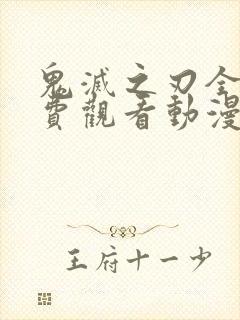 鬼滅之刃全
費觀看動漫
王府十一少